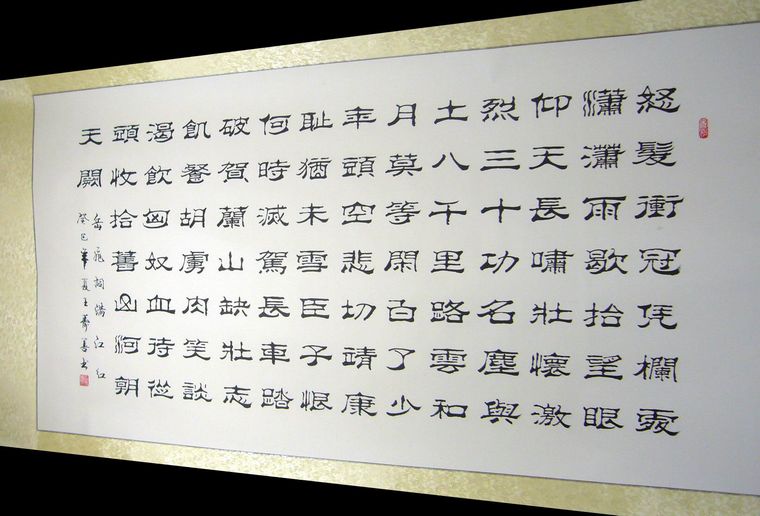 怒髮衝冠凭欄處
瀟瀟雨歇抬望眼
仰天長嘯壯懷激
烈三十功名塵與
土八千里路雲和
月莫等閑白了少
年頭空悲切靖康
耻猶未雪臣子恨
何時滅駕長車踏
破賀蘭山缺壯志
飢餐胡虜肉笑談
渴飲匈奴血待從
頭收拾舊山河朝
天闕
岳飛詞滿江紅
癸巳年夏王